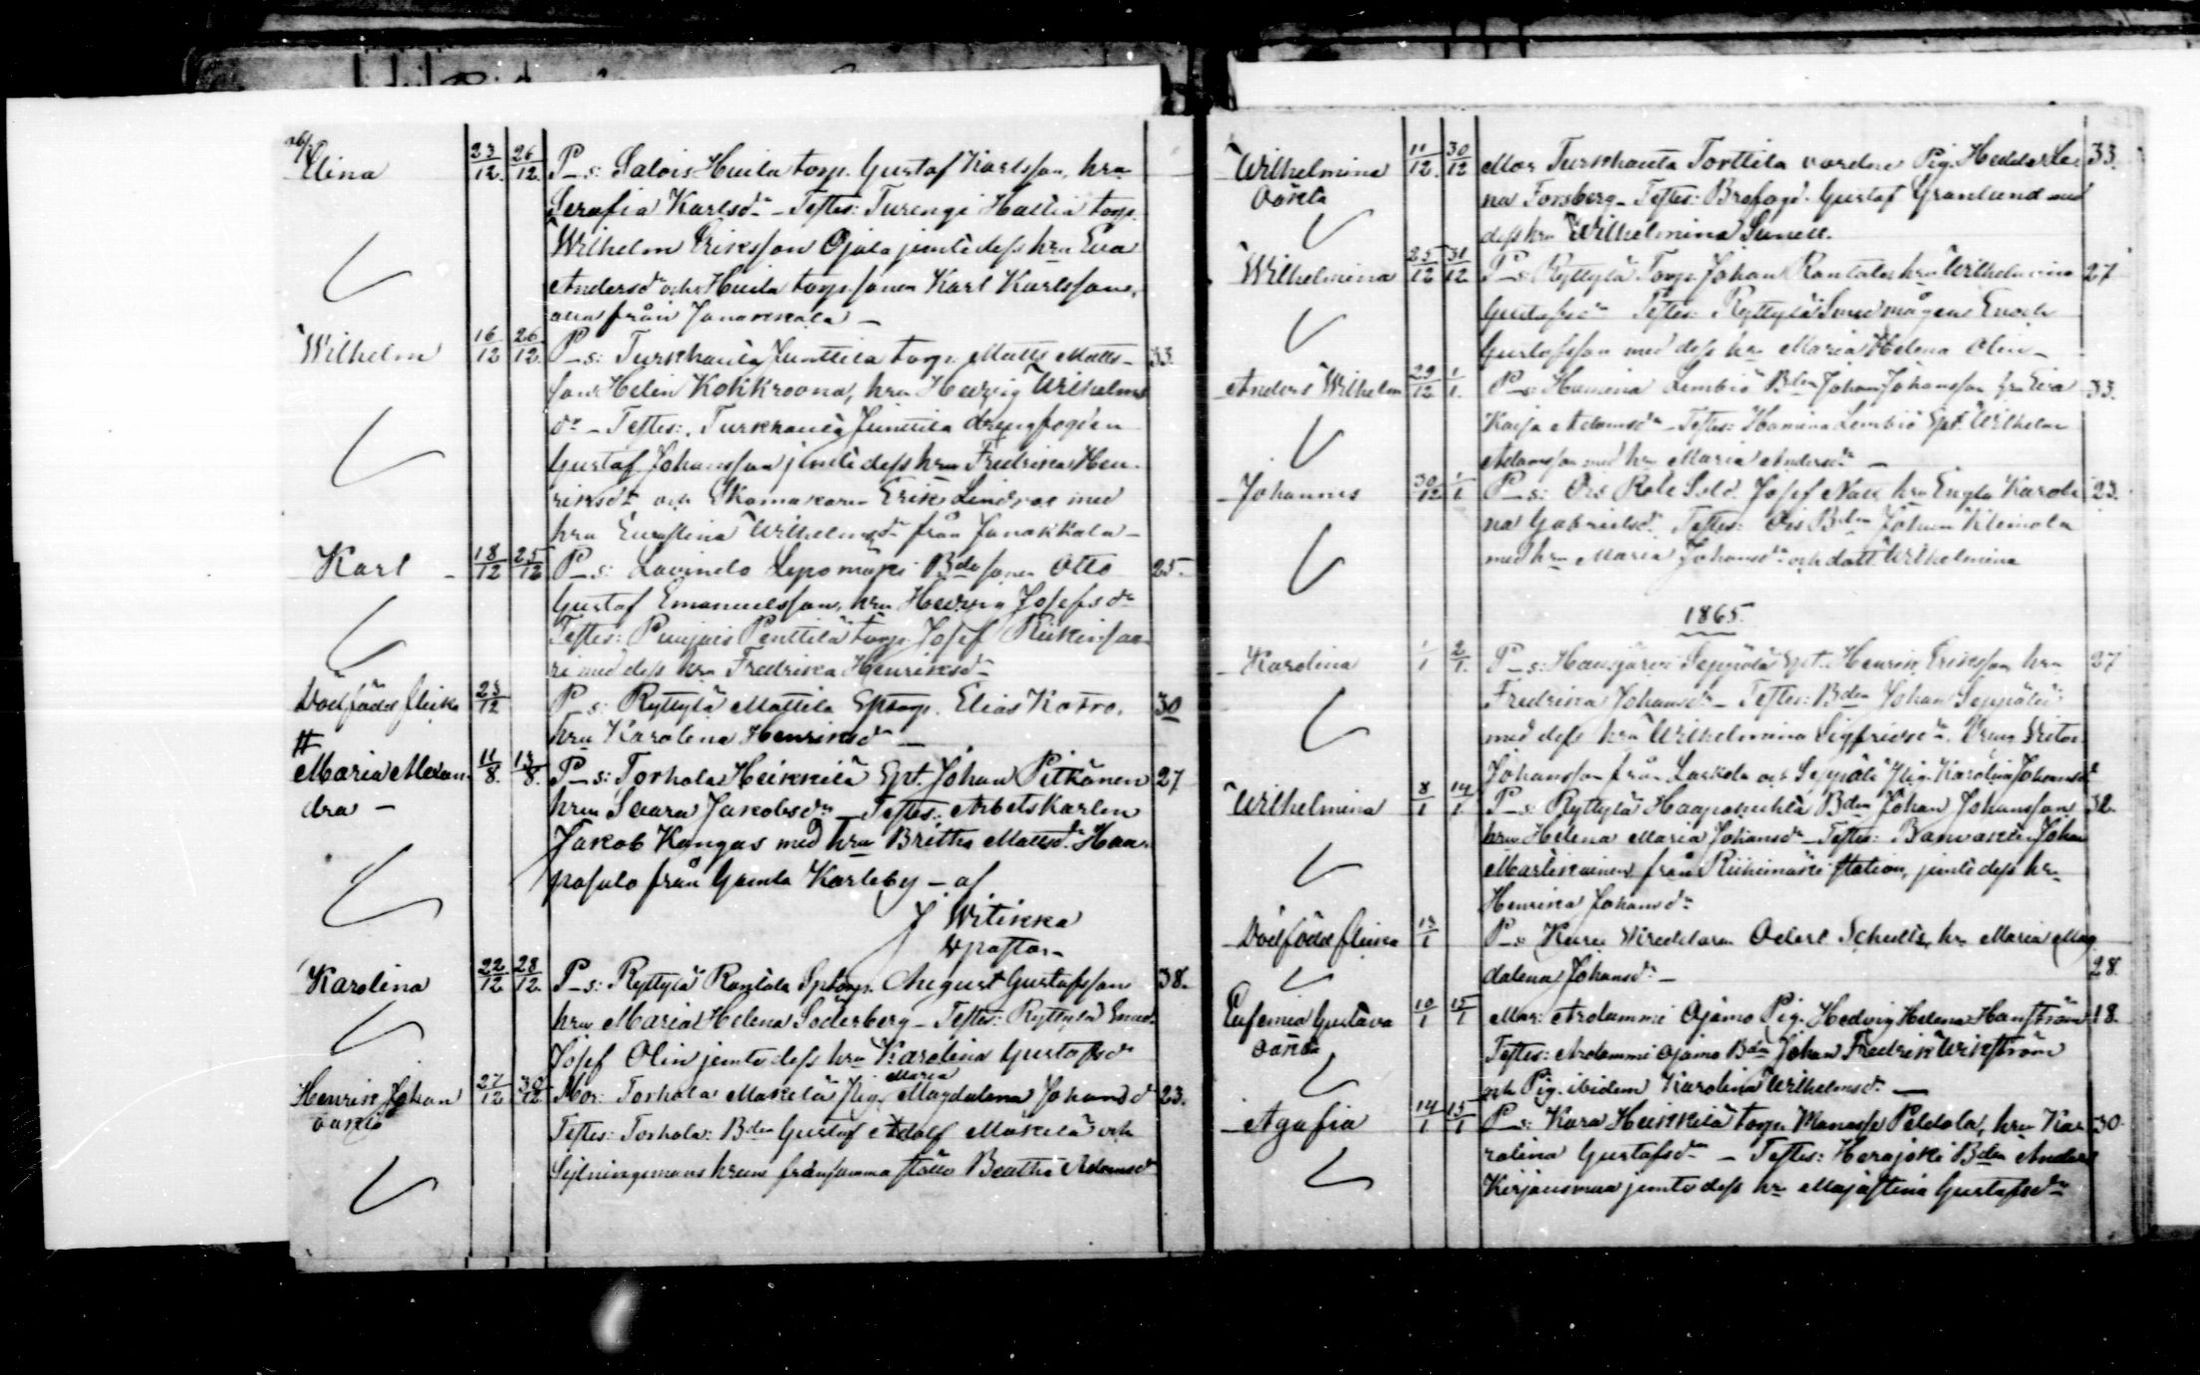 Elina 23/12 26/12 P_s: Salois Huila torp. Gustaf Karlsson, hru
Serafia Karlsdr - Testes: Turengi Hallia torp.
Wilhelm Eriksson Ojala jemte dess hru Eva
Andersdr och Huila torp. sonen Karl Karlsson,
alla från Janakkala -
Wilhelm 16/12 26/12 P_s: Turkhauta Junttila torp. Matts Matts- 33.
son Helin Kokkroona, hru Hedvig Wilhelms
dr - Testes: Turkhauta Junttila drängfogden
Gustaf Johansson jemte dess hru Fredrika Hen-
riksdr och Skomakaren Erik Lindroos med
hru Wilhelmsdr från Janakkala -
Karl - 18/12 25/12 P_s: Lavinto Lepomäki Bde sonen Otto 25.
Gustaf Emanuelsson, hru Hedvig Josefsdr
Testes: Penttilä torp. Josef
ri med dess hru Fredrika Henriksdr
Dödfödd flicka 23/12 P_s: Ryttylä Mattila Sptorp. Elias Kotro, 30
hru Karolina Henriksdr -
#
Maria Alexan- 11/8. 13/8. P_s: Torhola Heikkilä Spt. Johan Pitkänen 27
dra - hru Saara Jakobsdr - Testes: Arbetskarlen
Jakob Kangas med hru Britha Mattsd. Haa-
pasalo från Gamla Karleby - af
J Witikka
Karolina 22/12 28/12 P_s: Ryttylä Rantala Sptorp. August Gustafsson 38.
hru Maria Helena Söderberg - Testes: Ryttylä Smed.
Josef Olin jemte dess hru Karolina Gustafsdr
Maria
Henrik Johan 27/12 30/12 Mor: Torhola Mäkelä Pig. Magdalena Johansdr 23.
oäkta Testes: Torhola: Bden Gustaf Adolf Mäkelä och
Sytningsmans hrun från samma ställe Beatha Adamsdr
Wilhelmina 11/12 30/12 Mor Turkhauta Torttila varden Pig. Hedda Le- 33.
oäkta na Forsberg - Testes: Brofogd. Gustaf Granlund med
dess hru Wilhelmina Sunell.
Wilhelmina 25/12 31/12 P_s: Ryttylä Torp. Johan Rantala hru Wilhelmina 27
Gustafsdr Testes: Ryttylä Smedmågen Enoch
Gustafsson med dess hru Maria Helena Olin -
Anders Wilhelm 29/12 1/1. P_s: Hamina Lembiö Bden Johan Johansson hru Eva 33.
Kaisa Adamsdr - Testes: Hamina Lembiö Spt. Wilhelm
Adamsson med hru Maria Andersdr -
Johannes 30/12 1/1 P_s: Ois Rote Sold. Josef Natt hru Engla Karoli 23.
na Gabrielsd. Testes: Ois Bden Johan Kleimola
med hru Maria Johansdr och dott. Wilhelmina
1865.
Karolina 1/1 2/1. P_s: Hausjärvi Seppälä Spt. Henrik Eriksson hru 27
Fredrika Johansdr - Testes: Bden Johan Seppälä
med dess hru Wilhelmina Sigfridsdr. Dreng
Johansson från och Seppälä Pig. Karolina Johansdr
Wilhelmina 8/1 14/1. P_s: Ryttylä Haapahuhta Bden Johan Johansson 32.
hru Helena Maria Johansdr - Testes: Banvakten Johan
Martikainen från Riihimäki station, jemte dess hru
Henrika Johansdr
Dödfödd flicka 13/1 P_s: Kuru Odert Schultz, hru Maria Mag
dalena Johansdr - 28.
Eufemia Gustava 10/1 15/1 Mor: Arolammi Ojamo Pig. Hedvig Helena Hanström 18.
oäkta Testes: Arolammi Ojamo Bden Johan Fredrik Wikström
och Pig. ibidem Karolina Wilhelmsdr -
Agafia 14/1 15/1 P_s: Kara Heikkilä torp. Manasse Peltola, hru Ka- 30.
rolina Gustafsdr - Testes: Herajoki Bden Anders
Kirjausmaa jemte dess hru Majastina Gustafsdr